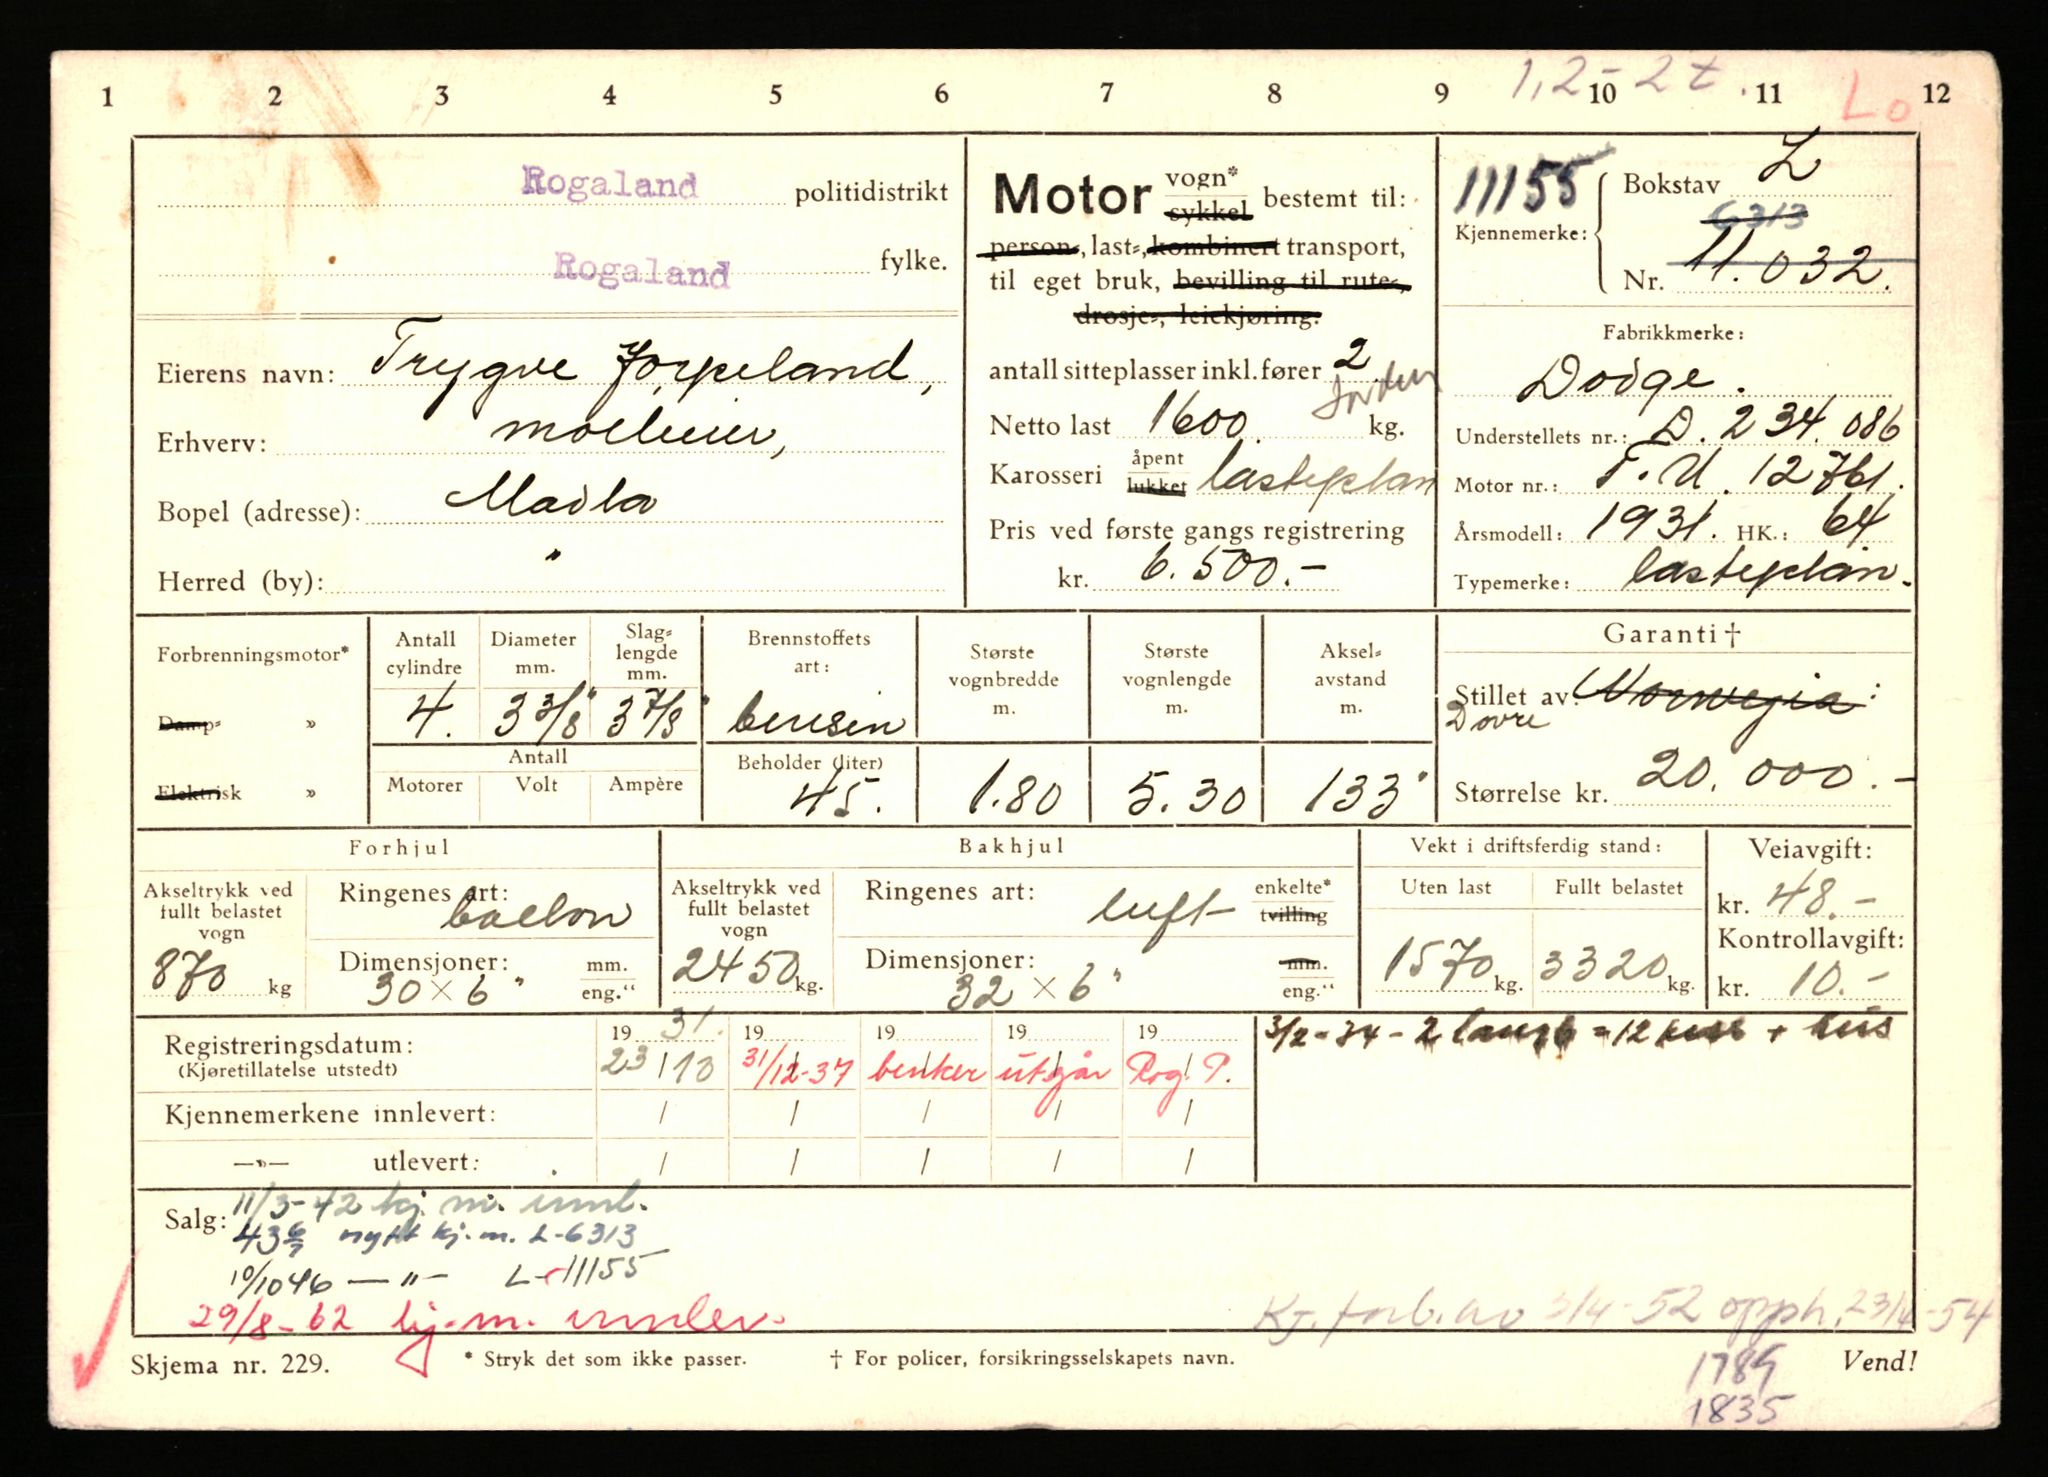 1 2 3 4 5 6 7 8 9 10 11 12
1,2 - 2 t.
Lo
Rogaland politidistrikt
Rogaland fylke.
Eierens navn: Trygve Jørpeland,
Erhverv: møllieier,
Bopel (adresse): Madla
Herred (by): "
Motor vogn* sykkel bestemt til:
person-, last-, kombinert transport,
til eget bruk, bevilling til rute-,
drosje-, leiekjøring.
antall sitteplasser inkl. fører 2
Netto last 1600 kg.
Karosseri åpent lukket lasteplan
Pris ved første gangs registrering
kr. 6.500.-
11155
Kjennemerke:
Bokstav L
6313
Nr. 11.032.
Fabrikkmerke:
Dodge.
Understellets nr.: D. 234.086
Motor nr.: T.U. 12761.
Årsmodell: 1931. HK.: 64
Typemerke: lasteplan.
Forbrenningsmotor*
Damp- »
Elektrisk »
Antall cylindre
4.
Diameter mm.
3 3/8"
Slag-lengde mm.
3 7/8"
Antall
Motorer Volt Ampère
Brennstoffets art:
bensin
Beholder (liter)
45.
Største vognbredde m.
1.80
Største vognlengde m.
5.30
Aksel-avstand m.
133"
Garanti †
Stillet av: Norwegia
Dovre
Størrelse kr. 20.000.-
Forhjul
Akseltrykk ved fullt belastet vogn
870 kg
Ringenes art: ballon
Dimensjoner: 30 × 6" mm. eng."
Bakhjul
Akseltrykk ved fullt belastet vogn
2450 kg.
Ringenes art: luft enkelte* tvilling
Dimensjoner: 32 × 6" mm. eng."
Vekt i driftsferdig stand:
Uten last Fullt belastet
1570 kg. 3320 kg.
Veiavgift:
kr. 48.-
Kontrollavgift:
kr. 10.-
Registreringsdatum: 19 31. 19 19 19 19
(Kjøretillatelse utstedt) 23/10 31/12-37 benker utgår Rog. P.
3/2-34 - 2 = 12 + hus
Kjennemerkene innlevert: / / / / /
—"— utlevert: / / / / /
Salg: 11/3-42 kj. m. innl.
43 6/7 nytt kj.m. L-6313
10/10 46 — " — L-11155
29/8-62 kj.m. innlev.
Kj. forb. av 3/4-52 opph. 23/4-54
Skjema nr. 229.
* Stryk det som ikke passer.
† For policer, forsikringsselskapets navn.
1789
Vend!
1835